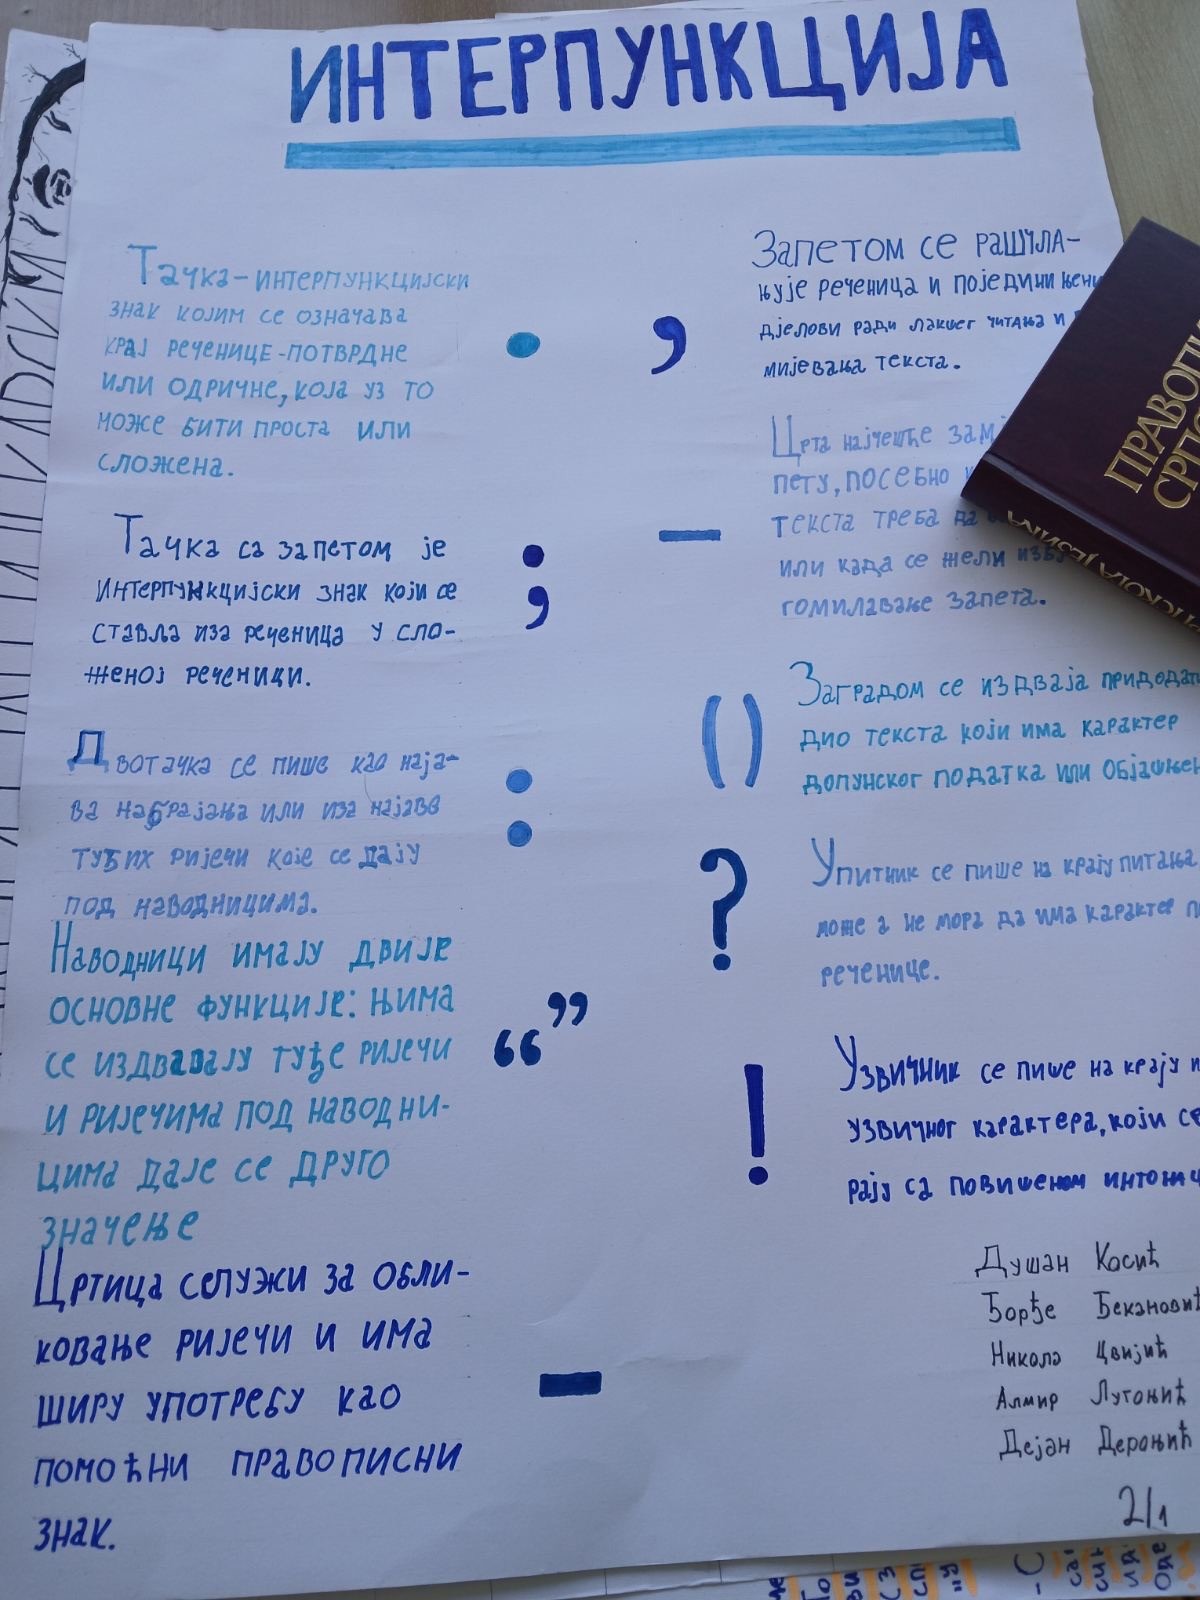 ИНТЕРПУНКЦИЈА
Тачка-интерпункцијски
знак којим се означава
крај реченице-потврдне
или одричне, која уз то
може бити проста или
сложена.
Тачка са запетом је
интерпункцијски знак који се
ставља иза реченица у сло-
женој реченици.
Двотачка се пише као наја-
ва набрајања или иза најаве
туђих ријечи које се дају
под наводницима.
Наводници имају двије
основне функције: њима
се издвавају туђе ријечи
и ријечима под наводни-
цима даје се друго
значење
Цртица служи за обли-
ковање ријечи и има
ширу употребу као
помоћни правописни
знак.
.
;
:
“ ”
-
Запетом се рашчла-
њује реченица и поједини њени
дјелови ради лакшег читања и
мијевања текста.
Црта најчешће
пету, посебно
текста треба да
или када се жели
гомилавање запета.
Заградом се издваја
дио текста који има карактер
допунског податка или
Упитник се пише на крају питања
може а не мора да има карактер
реченице.
Узвичник се пише на крају
узвичног карактера, који се
рају са повишеном
,
–
()
?
!
ПРАВОПИ
СРПС
ПСКОГА ЈЕЗИКА
Душан Косић
Ђорђе Ђекановић
Никола Цвијић
Алмир Лутоњић
Дејан Дероњић
2/1